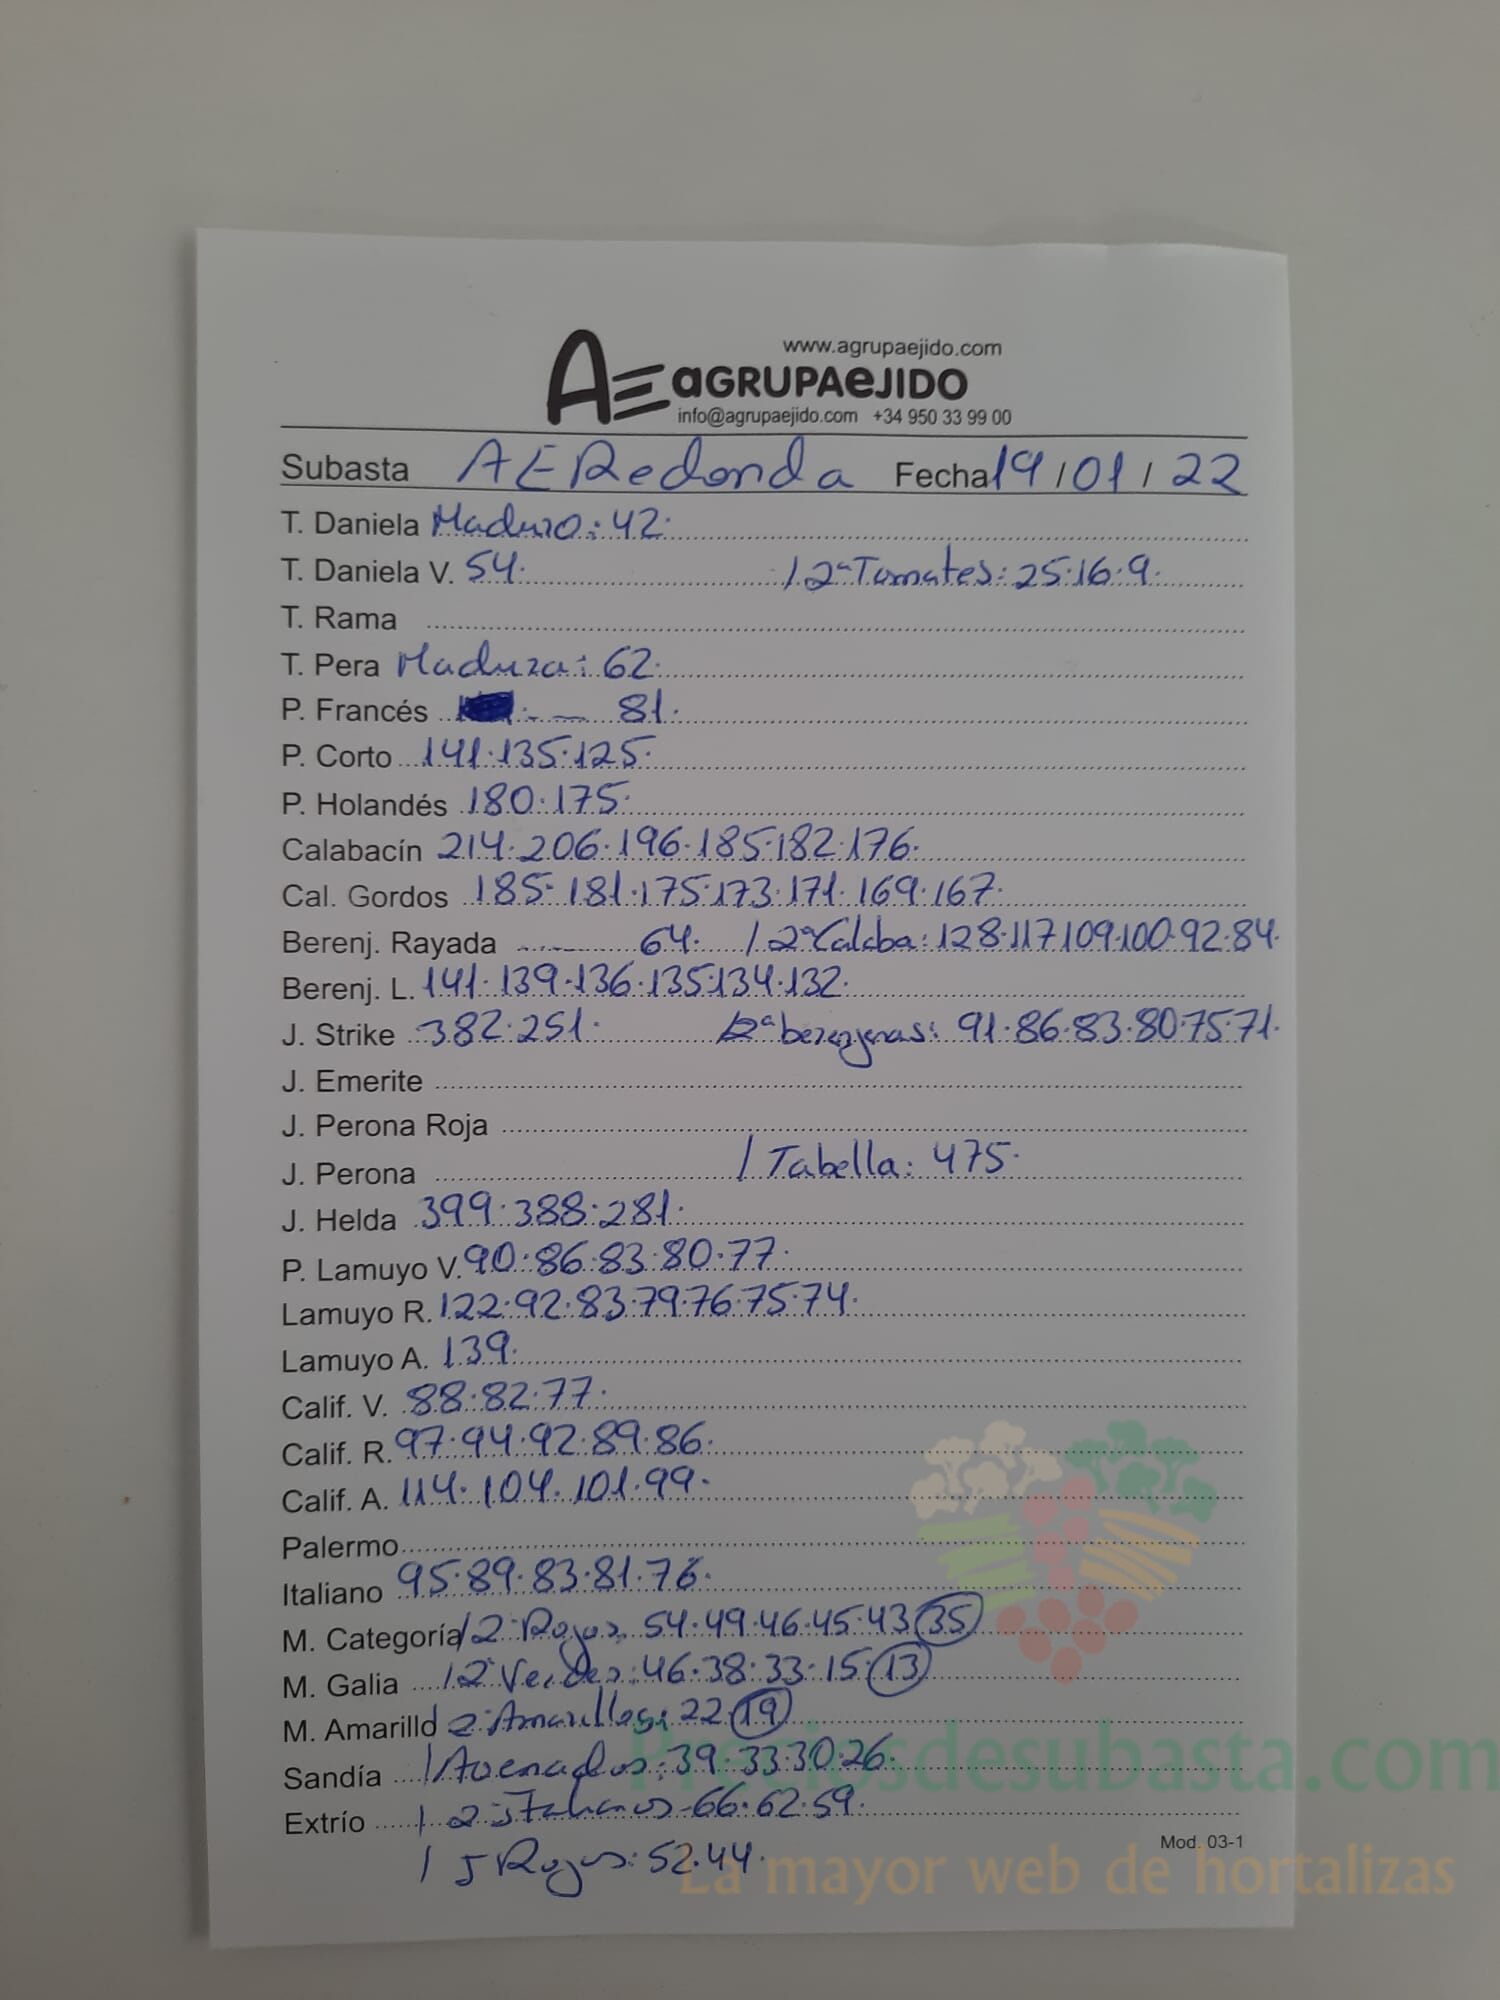 www.agrupaejido.com
AE aGRUPAeJIDO
info@agrupaejido.com +34 950 33 99 00
Subasta AE Redonda Fecha 19/01/22
T. Daniela Maduro: 42.
T. Daniela V. 54. / 2ª Tomates: 25.16.9.
T. Rama
T. Pera Madura: 62.
P. Francés - 81.
P. Corto 141.135.125.
P. Holandés 180.175.
Calabacín 214.206.196.185.182.176.
Cal. Gordos 185.181.175.173.171.169.167.
Berenj. Rayada - 64. / 2ª Calaba: 128.117.109.100.92.84.
Berenj. L. 141.139.136.135.134.132.
J. Strike 382.251. / 2ª berenjenas: 91.86.83.80.75.71.
J. Emerite
J. Perona Roja
J. Perona / Tabella: 475.
J. Helda 399.388.281.
P. Lamuyo V. 90.86.83.80.77.
Lamuyo R. 122.92.83.79.76.75.74.
Lamuyo A. 139.
Calif. V. 88.82.77.
Calif. R. 97.94.92.89.86.
Calif. A. 114.104.101.99.
Palermo
Italiano 95.89.83.81.76.
M. Categoría / 2ª Rojos: 54.49.46.45.43 35
M. Galia / 2ª Verdes: 46.38.33.15.13
M. Amarillo 2ª Amarillos: 22.19
Sandía / Asenados: 39.33.30.26.
Extrío / 2ª Italianos 66.62.59.
/ 5 Rojos: 52.44.
Mod. 03-1
Preciosdesubasta.com
La mayor web de hortalizas